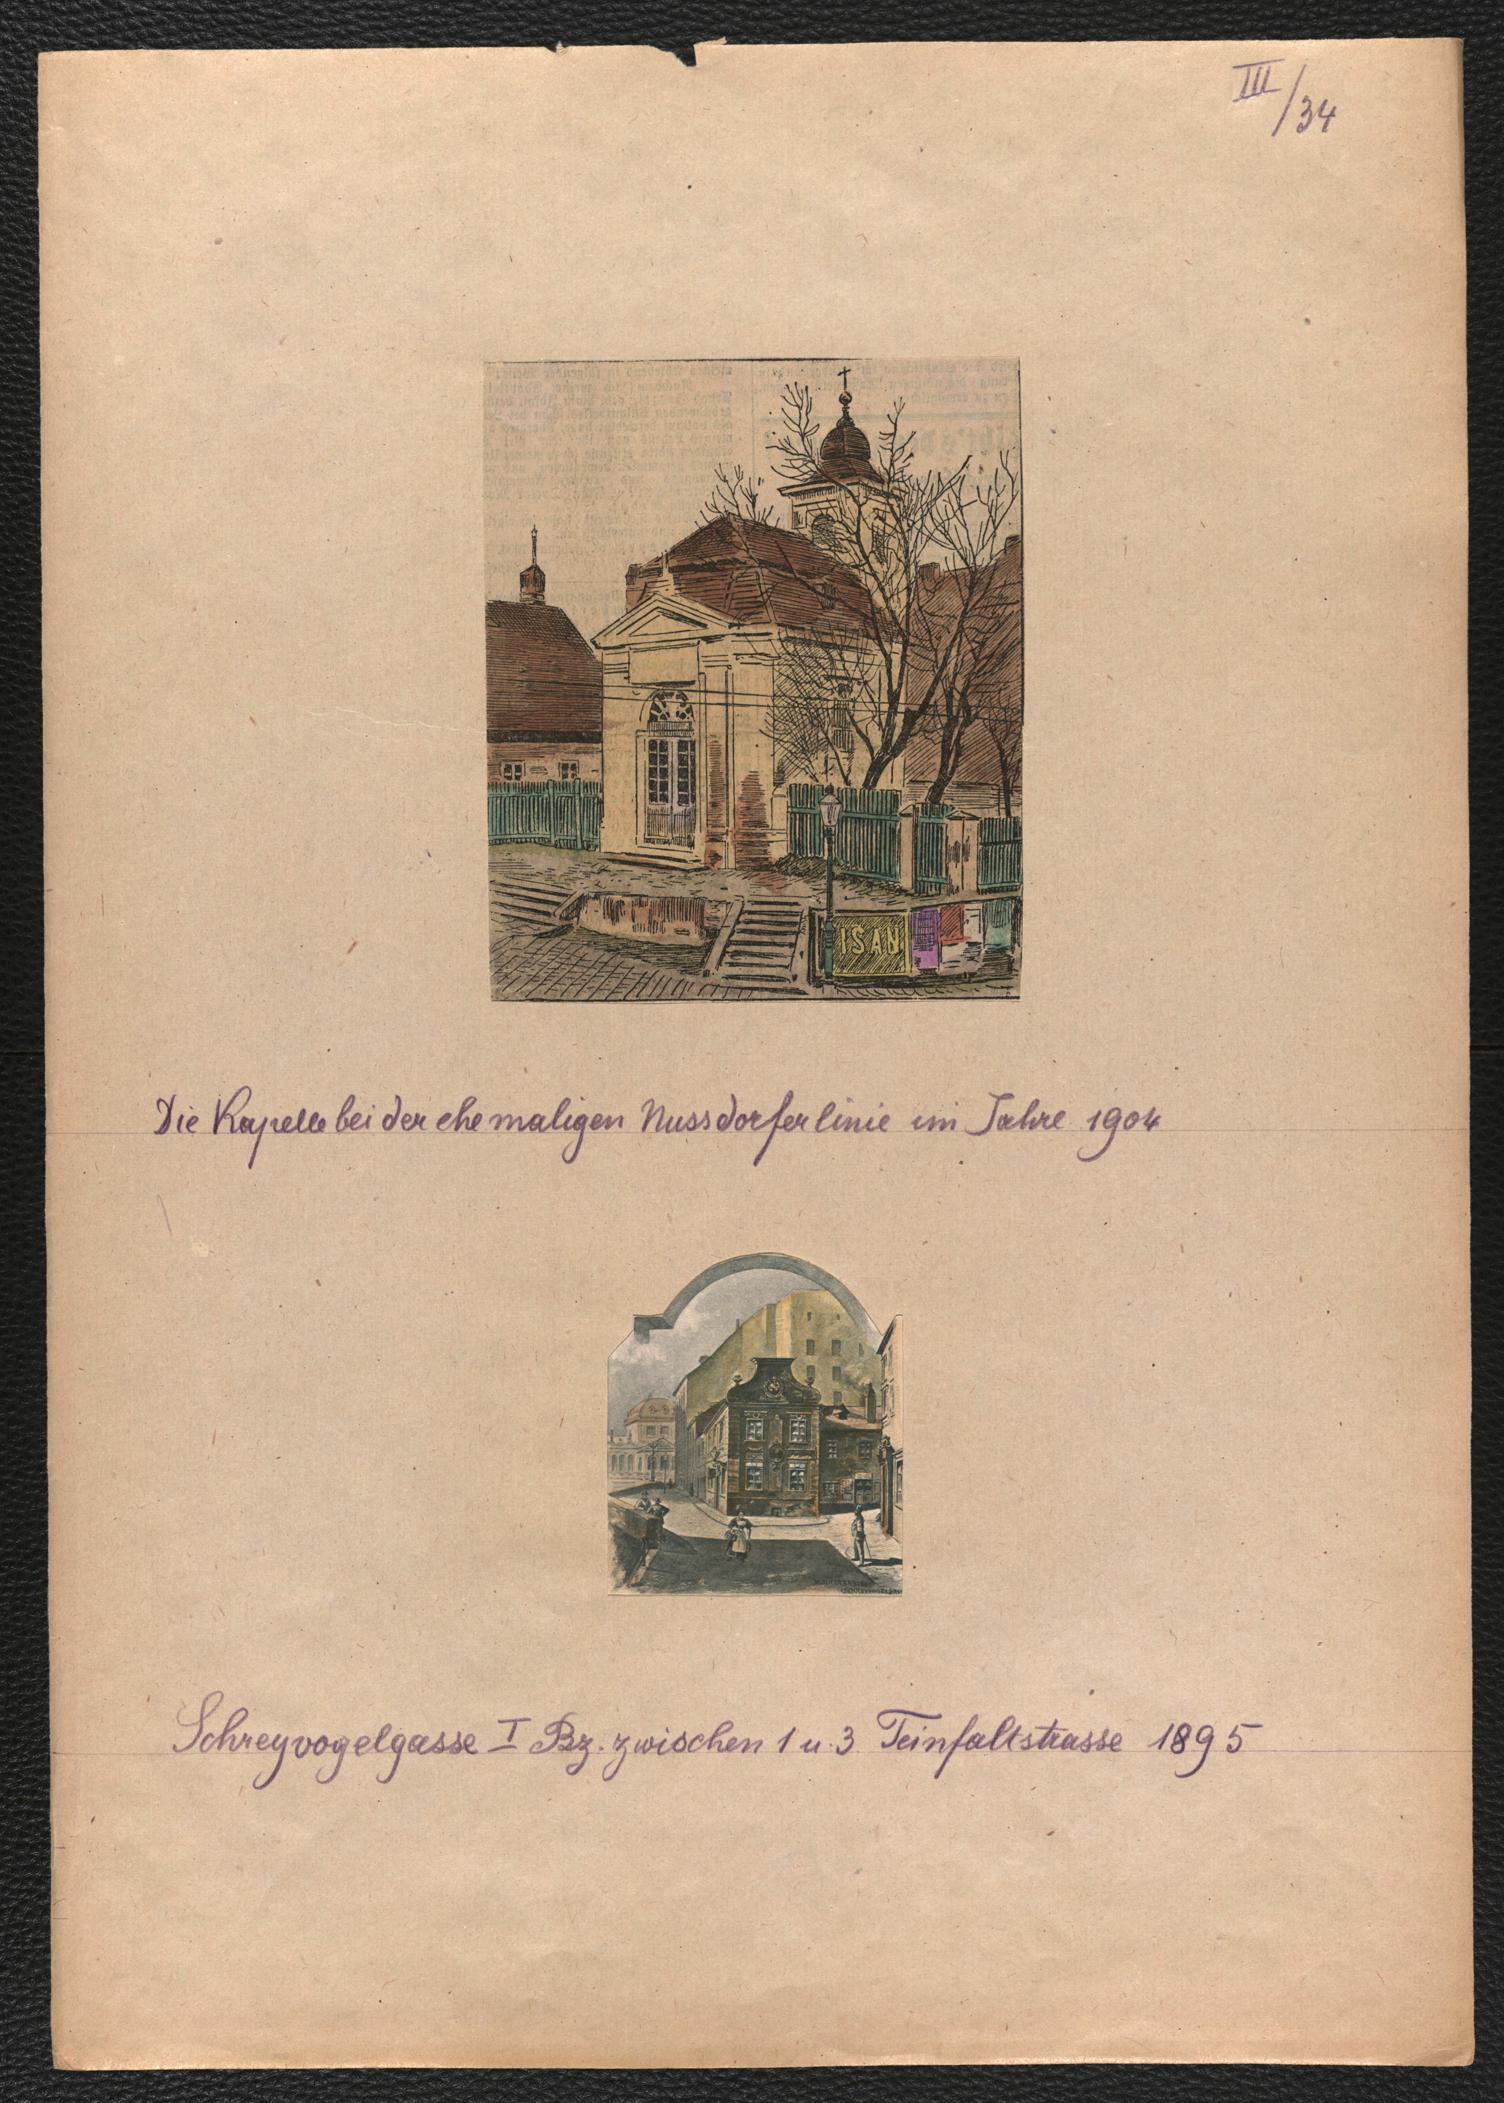 III/34
ISAN
Die Kapelle bei der ehemaligen Nussdorferlinie im Jahre 1904
Schreyvogelgasse I Bz. zwischen 1 u. 3 Teinfaltstrasse 1895